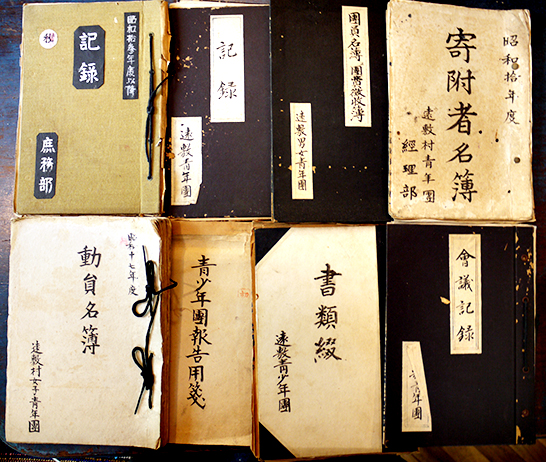 昭和拾参年度以降
記録
庶務部
記録
遠敷青年團
團員名簿、團費徴收簿
遠敷男女青年團
昭和拾年度
寄附者名簿
遠敷村青年團
經理部
昭和十七年度
動員名簿
遠敷村女子青年團
青少年團報告用箋
書類綴
遠敷青少年團
會議記録
青年團